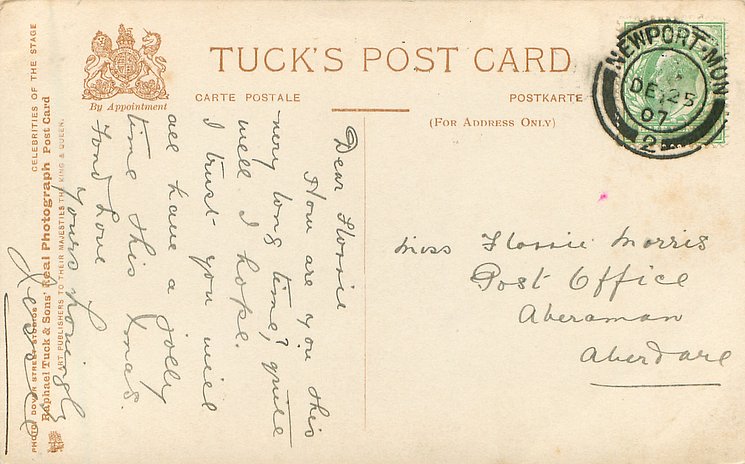 TUCK'S POST CARD
By Appointment
CARTE POSTALE
POSTKARTE
(FOR ADDRESS ONLY)
NEWPORT·MON
DE 25
07
2
Dear Flossie
How are you this
very long time, quite
well I hope.
I trust you will
all have a jolly
time this Xmas.
Fond Love
Yours Lovingly
Miss Flossie Morris
Post Office
Aberaman
Aberdare
CELEBRITIES OF THE STAGE
Raphael Tuck & Sons' Real Photograph Post Card
ART PUBLISHERS TO THEIR MAJESTIES THE KING & QUEEN.
PHOTO DOVER STREET STUDIOS